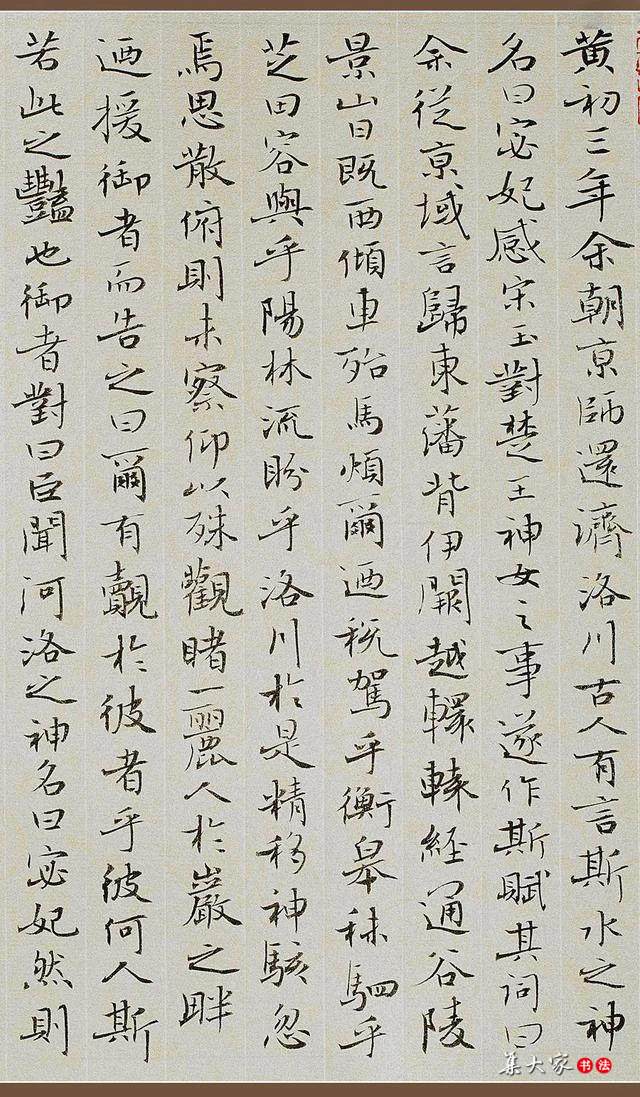 黄初三年余朝京師還濟洛川古人有言斯水之神
名曰宓妃感宋玉對楚王神女之事遂作斯賦其词曰
余從京域言歸東藩背伊闕越轘轅經通谷陵
景山日既西傾車殆馬煩爾迺税駕乎衡皋秣駟乎
芝田容與乎陽林流盼乎洛川於是精移神駭忽
焉思散俯則未察仰以殊觀睹一麗人於巖之畔
迺援御者而告之曰爾有觀於彼者乎彼何人斯
若此之豔也御者對曰臣聞河洛之神名曰宓妃然則
集大家书法